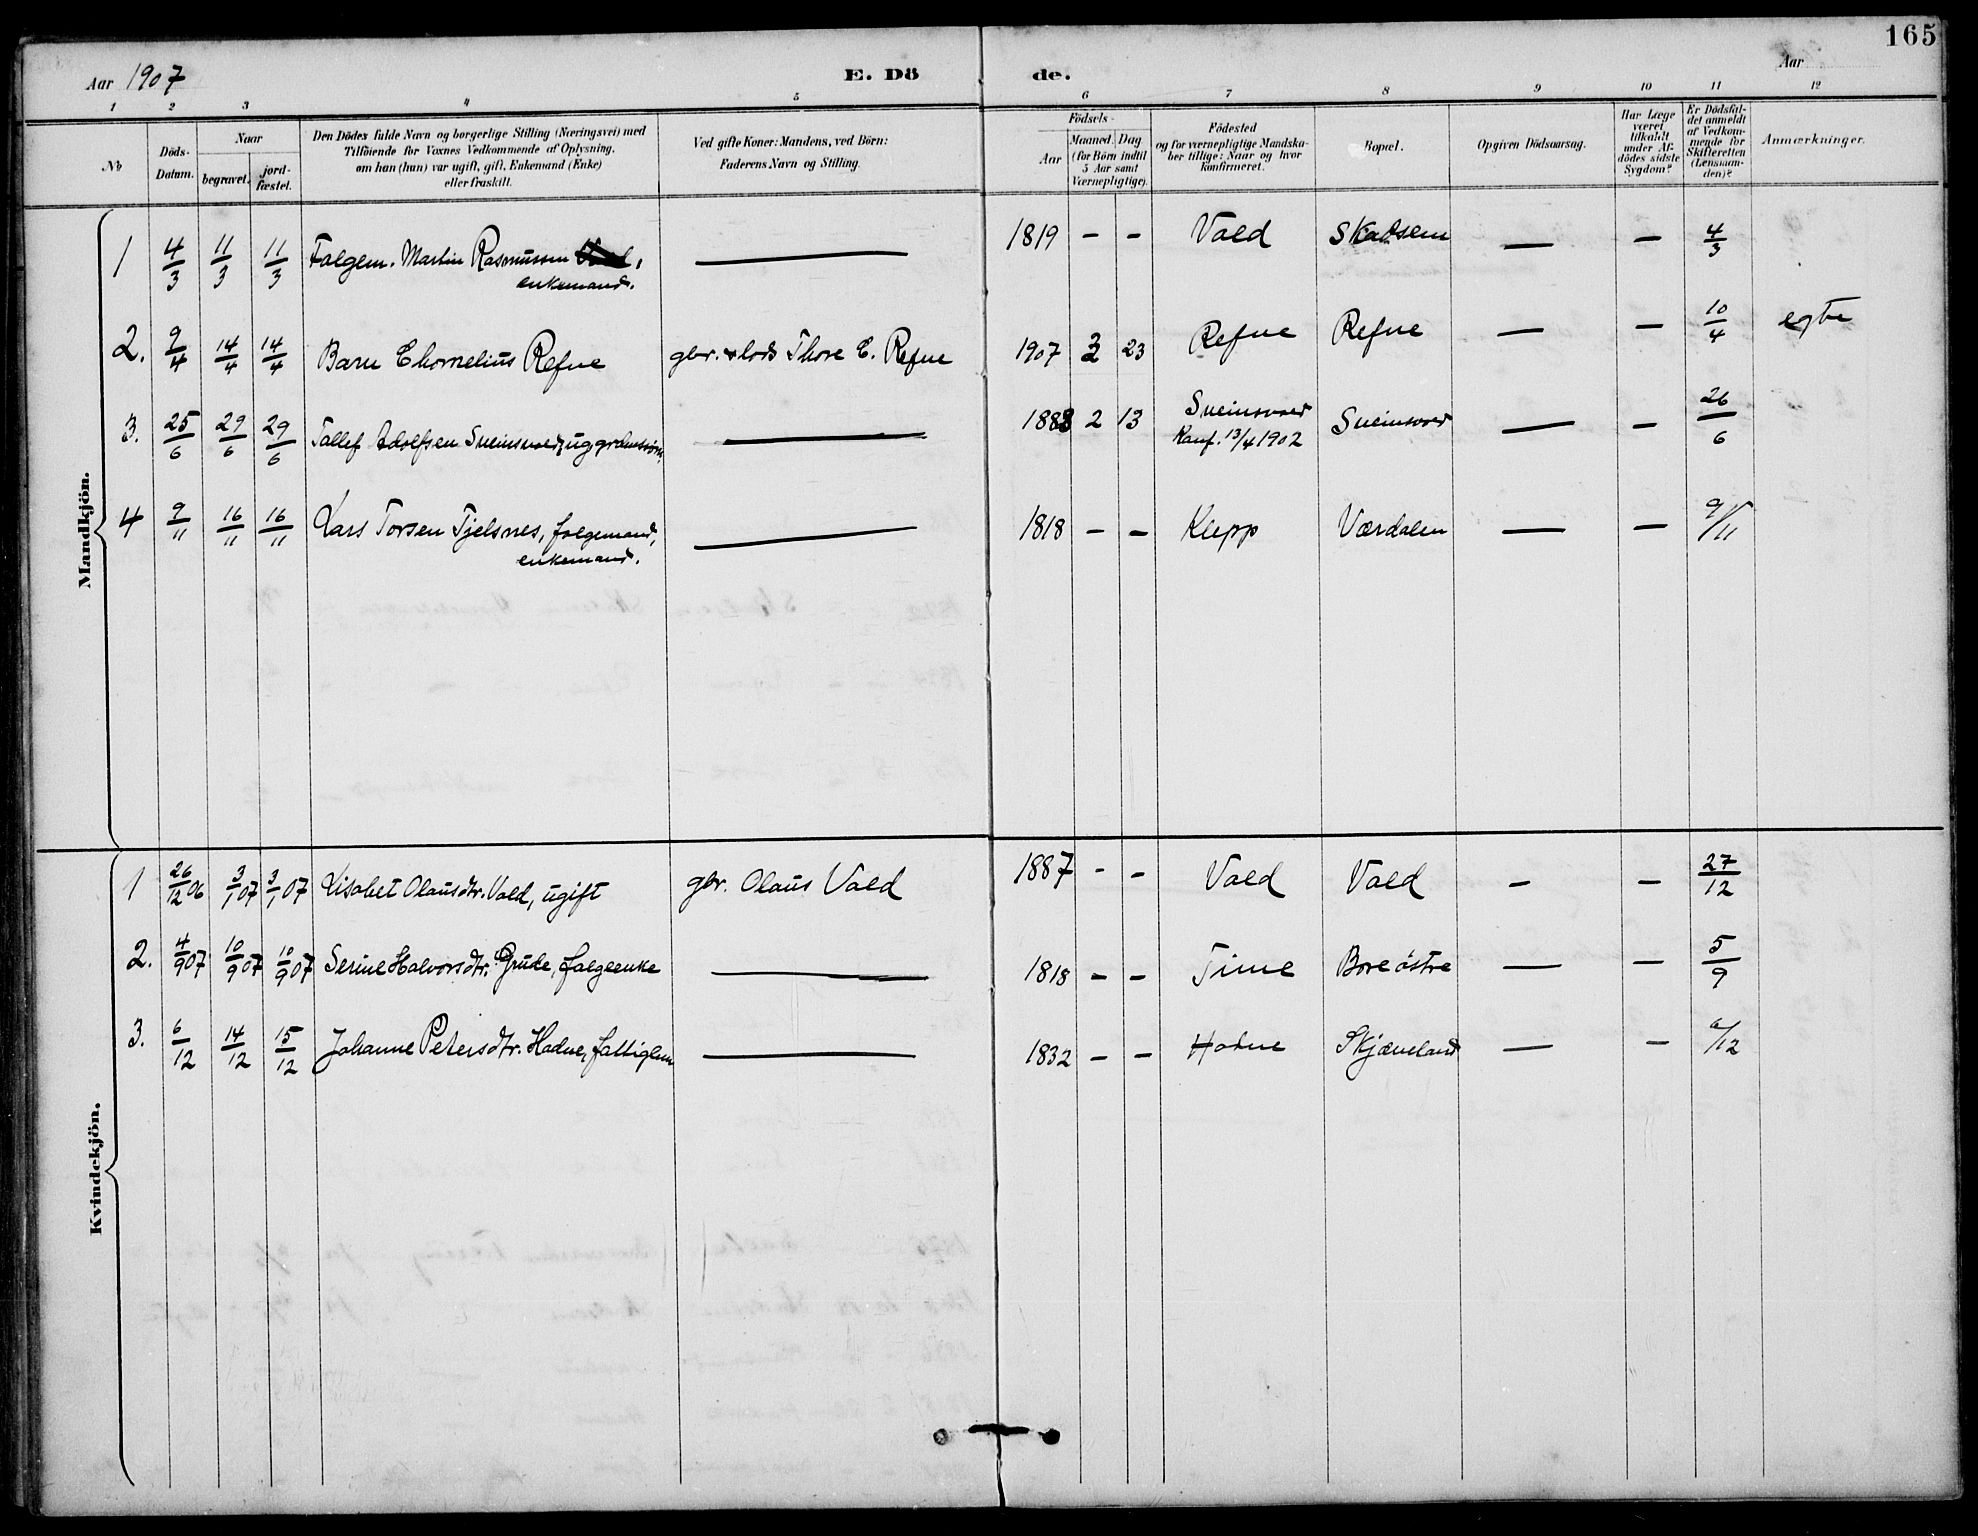 165
Aar 1907 E. Dö de. Aar
1 2 3 4 5 6 7 8 9 10 11 12
No
Döds-Datum.
Naar
begravet.
jord-fæstet.
Den Dödes fulde Navn og borgerlige Stilling (Næringsvei) med
Tilföiende for Voxnes Vedkommende af Oplysning,
om han (hun) var ugift, gift, Enkemand (Enke)
eller fraskilt.
Ved gifte Koner: Mandens, ved Börn:
Faderens Navn og Stilling.
Födsels-
Aar
Maaned. Dag
(for Börn indtil
5 Aar samt
Værnepligtige).
Födested
og for værnepligtige Mandska-
ber tillige: Naar og hvor
konfirmeret.
Bopæl.
Opgiven Dödsaarsag.
Har Læge
været
tilkaldt
under Af-
dödes sidste
Sygdom?
Er Dödsfal-
det anmeldt
af Vedkom-
mende for
Skifteretten
(Lensman-
den)?
Anmærkninger.
Mandkjön.
1 4/3 11/3 11/3 Folgem. Martin Rasmussen, — 1819 - - Vold Skadsem — — 4/3
enkemand.
2. 9/4 14/4 14/4 Barn Chornelius Refne gbr. & lods Thore C. Refne 1907 3 23 Refne Refne — — 10/4 egte
3. 25/6 29/6 29/6 Tallef Adolfsen Sveinsvold, ug. — 1888 2 13 Sveinsvold Sveinsvold — — 26/6
Konf. 13/4 1902
4 9/11 16/11 16/11 Lars Torsen Tjelsnes, folgemand, — 1818 - - Klepp Værdalen — — 9/11
enkemand.
Kvindekjön.
1 26/12 06 3/1 07 3/1 07 Lisabet Olausdtr. Vold, ugift gbr. Olaus Vold 1887 - - Vold Vold — — 27/12
2. 4/9 07 10/9 07 10/9 07 Serine Halvorsdtr. Grude, folgeenke — 1818 - - Time Bore östre — — 5/9
3. 6/12 14/12 15/12 Johanne Petersdtr. Hodne, fattiglem — 1832 - - Hodne Skjæveland — — 6/12